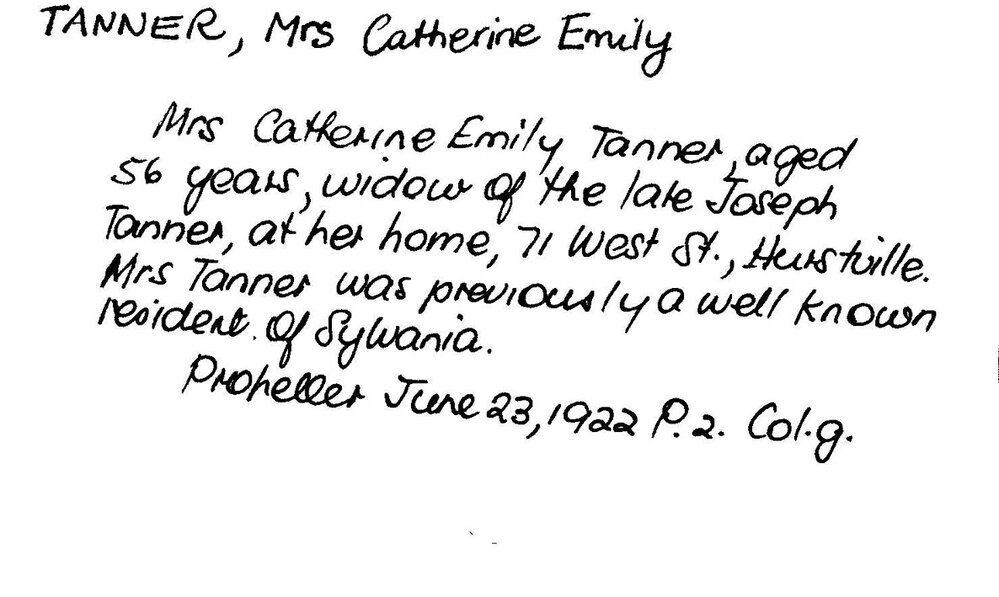 TANNER, Mrs Catherine Emily
Mrs Catherine Emily Tanner, aged
56 years, widow of the late Joseph
Tanner, at her home, 71 West St., Hurstville.
Mrs Tanner was previously a well known
resident. of Sylvania.
Propeller June 23, 1922 P. 2. Col. g.